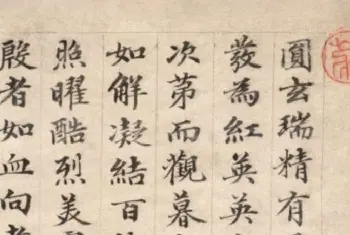 圓玄瑞精有
發為紅英英
次第而觀暮
如解凝結百
照曜酷烈美
殷者如血向者